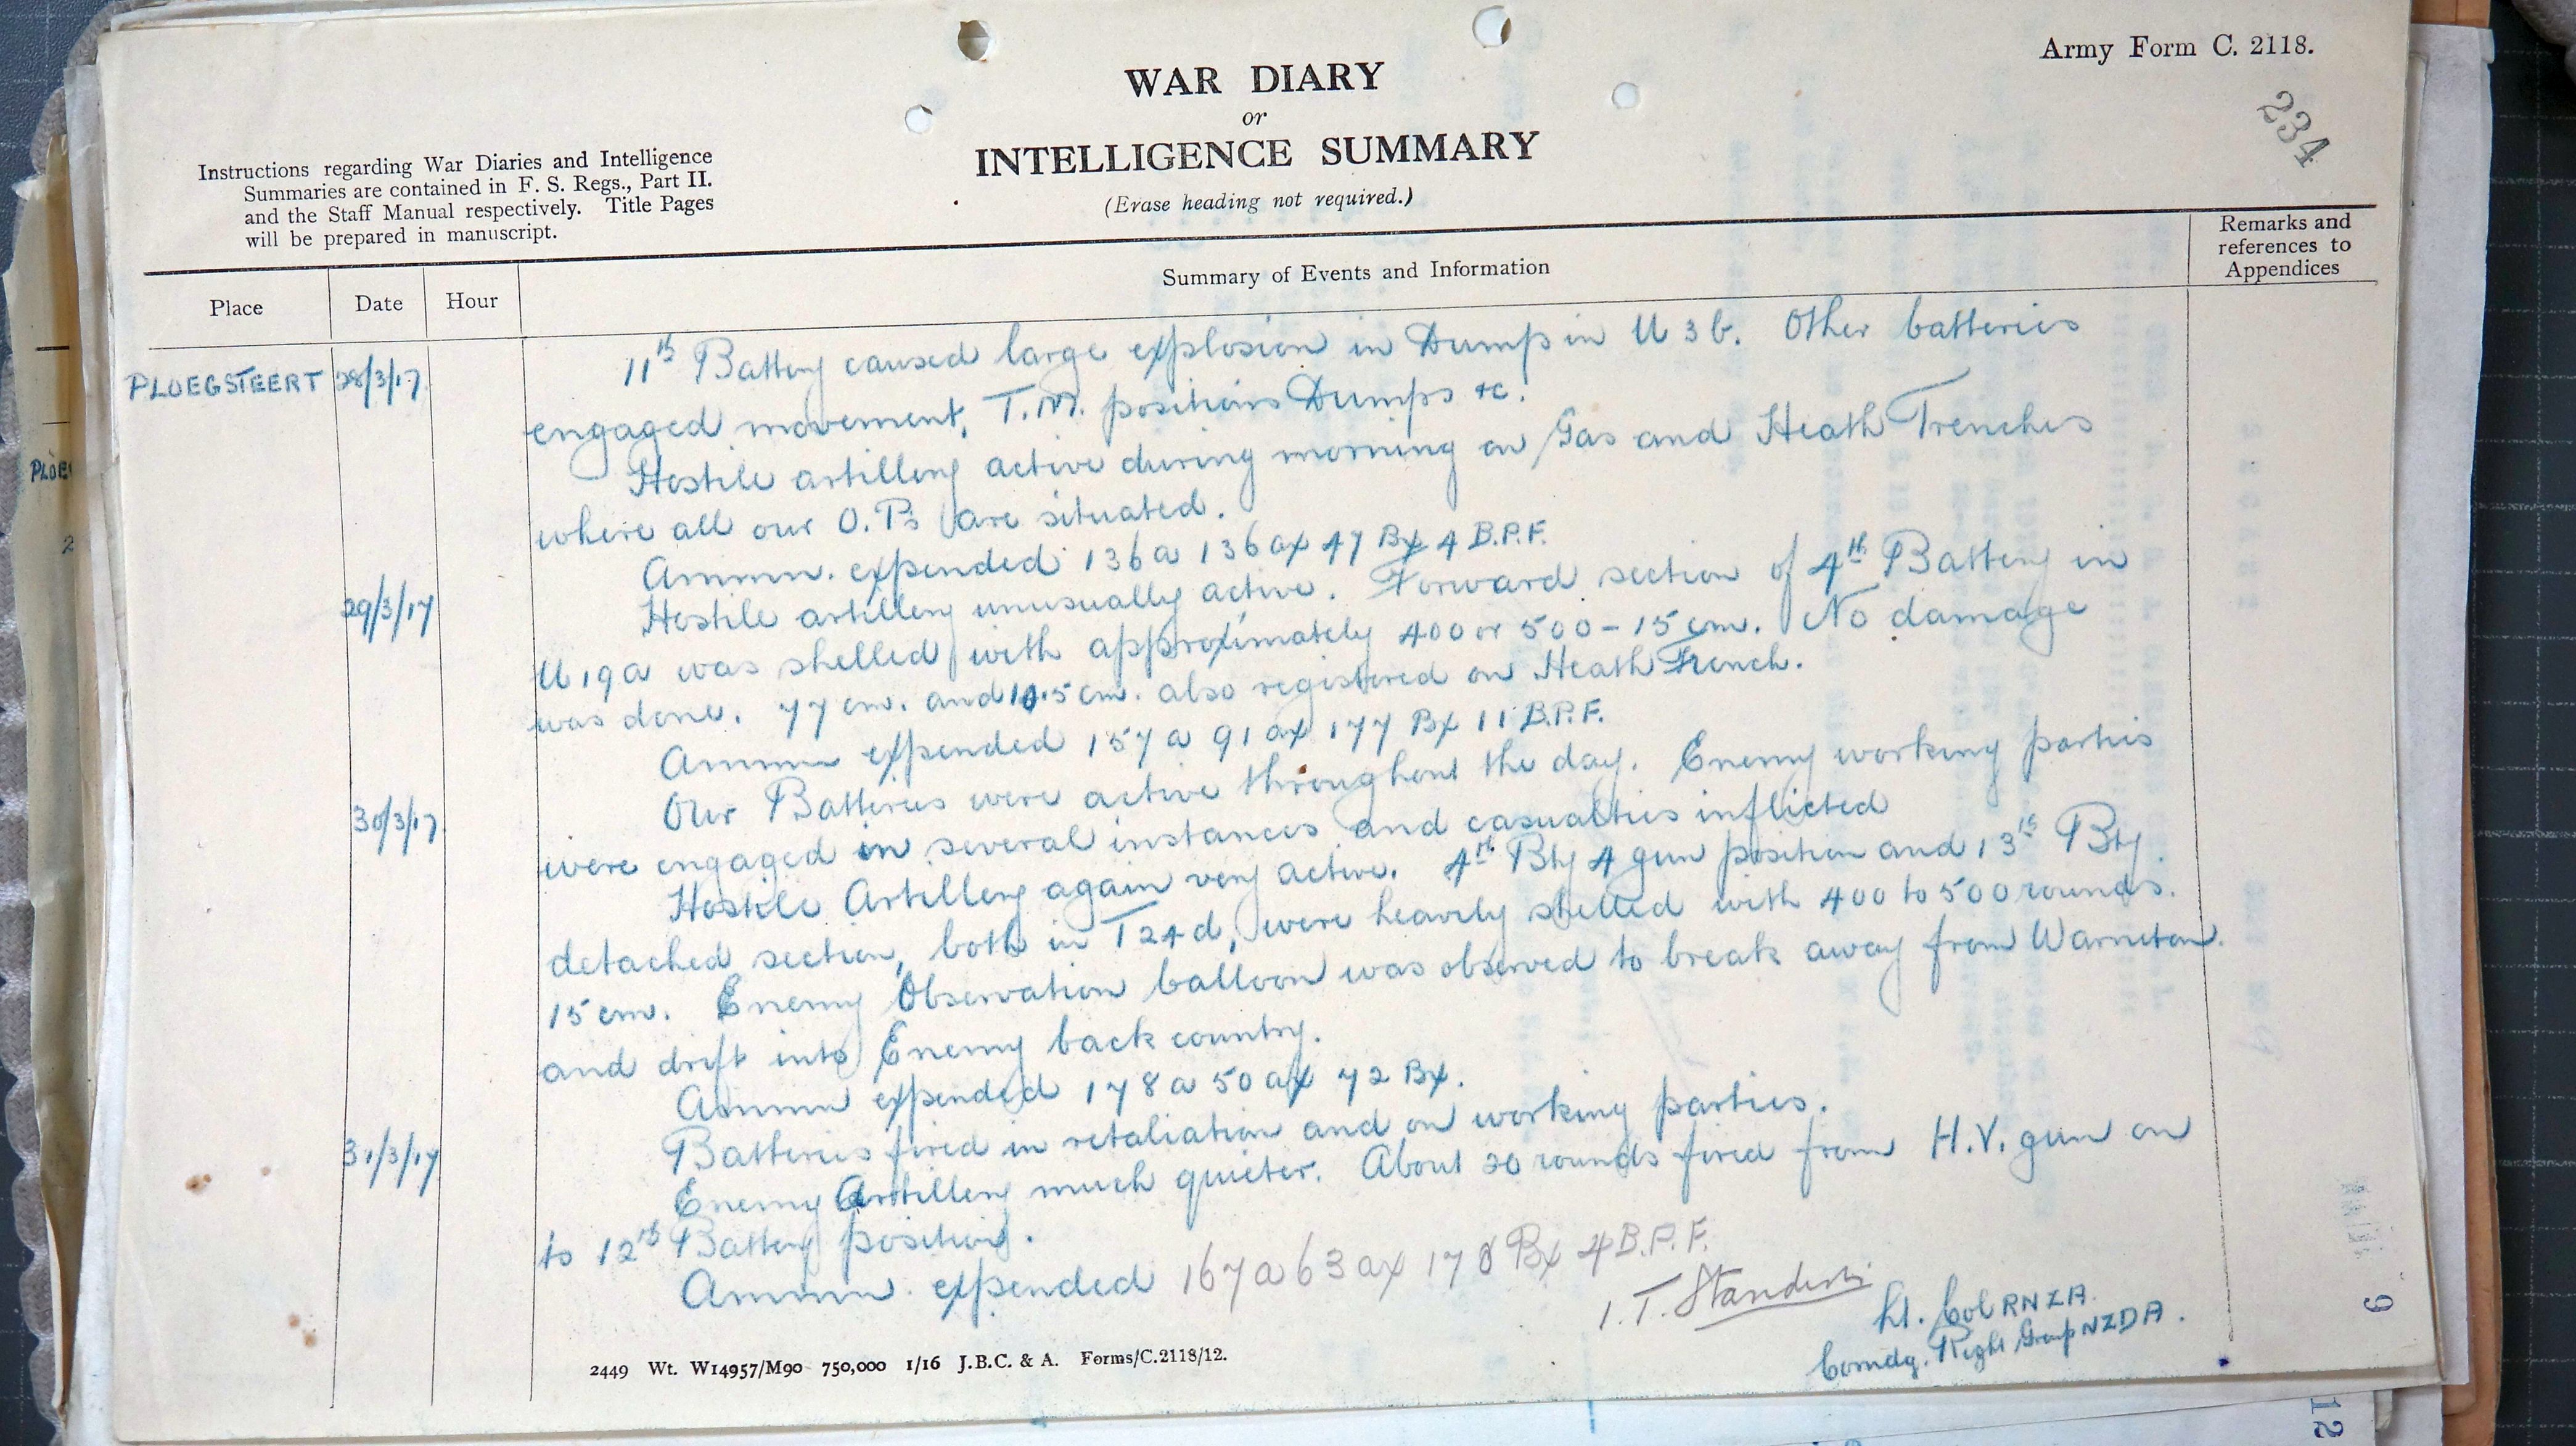 Army Form C. 2118.
234
WAR DIARY
or
INTELLIGENCE SUMMARY
(Erase heading not required.)
Instructions regarding War Diaries and Intelligence
Summaries are contained in F. S. Regs., Part II.
and the Staff Manual respectively. Title Pages
will be prepared in manuscript.
Place
Date
Hour
Summary of Events and Information
Remarks and
references to
Appendices
PLOEGSTEERT 28/3/17
11th Battery caused large explosion in Dump in U 3 b. Other batteries
engaged movement, T.M. positions Dumps &c.
Hostile artillery active during morning on Gas and Heath Trenches
where all our O.Ps are situated.
Ammn. expended 136 a 136 ax 47 Bx 4 B.P.F.
29/3/17
Hostile artillery unusually active. Forward section of 4th Battery in
U 19 a was shelled with approximately 400 or 500 - 15 cm. No damage
was done. 77 cm. and 10.5 cm. also registered on Heath Trench.
Ammn expended 157 a 91 ax 177 Bx 11 B.P.F.
30/3/17
Our Batteries were active throughout the day. Enemy working parties
were engaged in several instances and casualties inflicted
Hostile Artillery again very active. 4th Bty 4 gun position and 13th Bty.
detached section, both in T 24 d, were heavily shelled with 400 to 500 rounds.
15 cm. Enemy Observation balloon was observed to break away from Warneton.
and drift into Enemy back country.
Ammn expended 178 a 50 ax 72 Bx.
31/3/17
Batteries fired in retaliation and on working parties.
Enemy Artillery much quieter. About 20 rounds fired from H.V. gun on
to 12th Battery position.
Ammn. expended 167 a 63 ax 178 Bx 4 B.P.F.
I. T. Standish
Lt. Col RNZA.
Comdg. Right Group NZDA.
2449 Wt. W14957/M90 750,000 1/16 J.B.C. & A. Forms/C.2118/12.
9
12